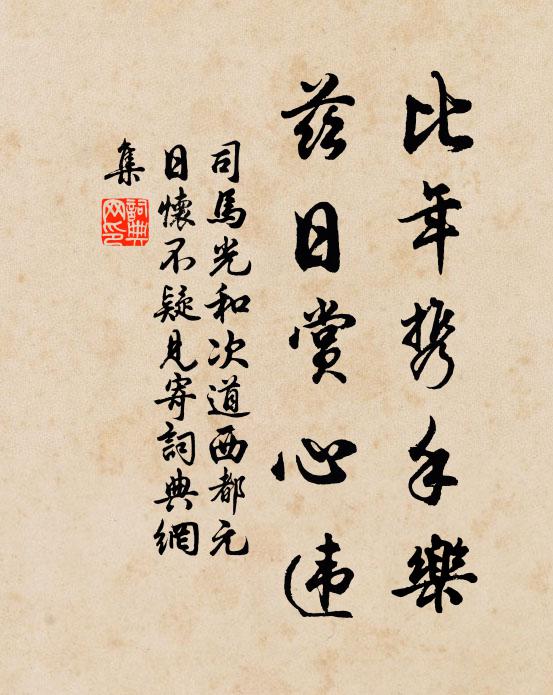 比年携手樂
茲日賞心违
司馬光和次道西都元
日懷不疑見寄詞典網
集
詞典網印